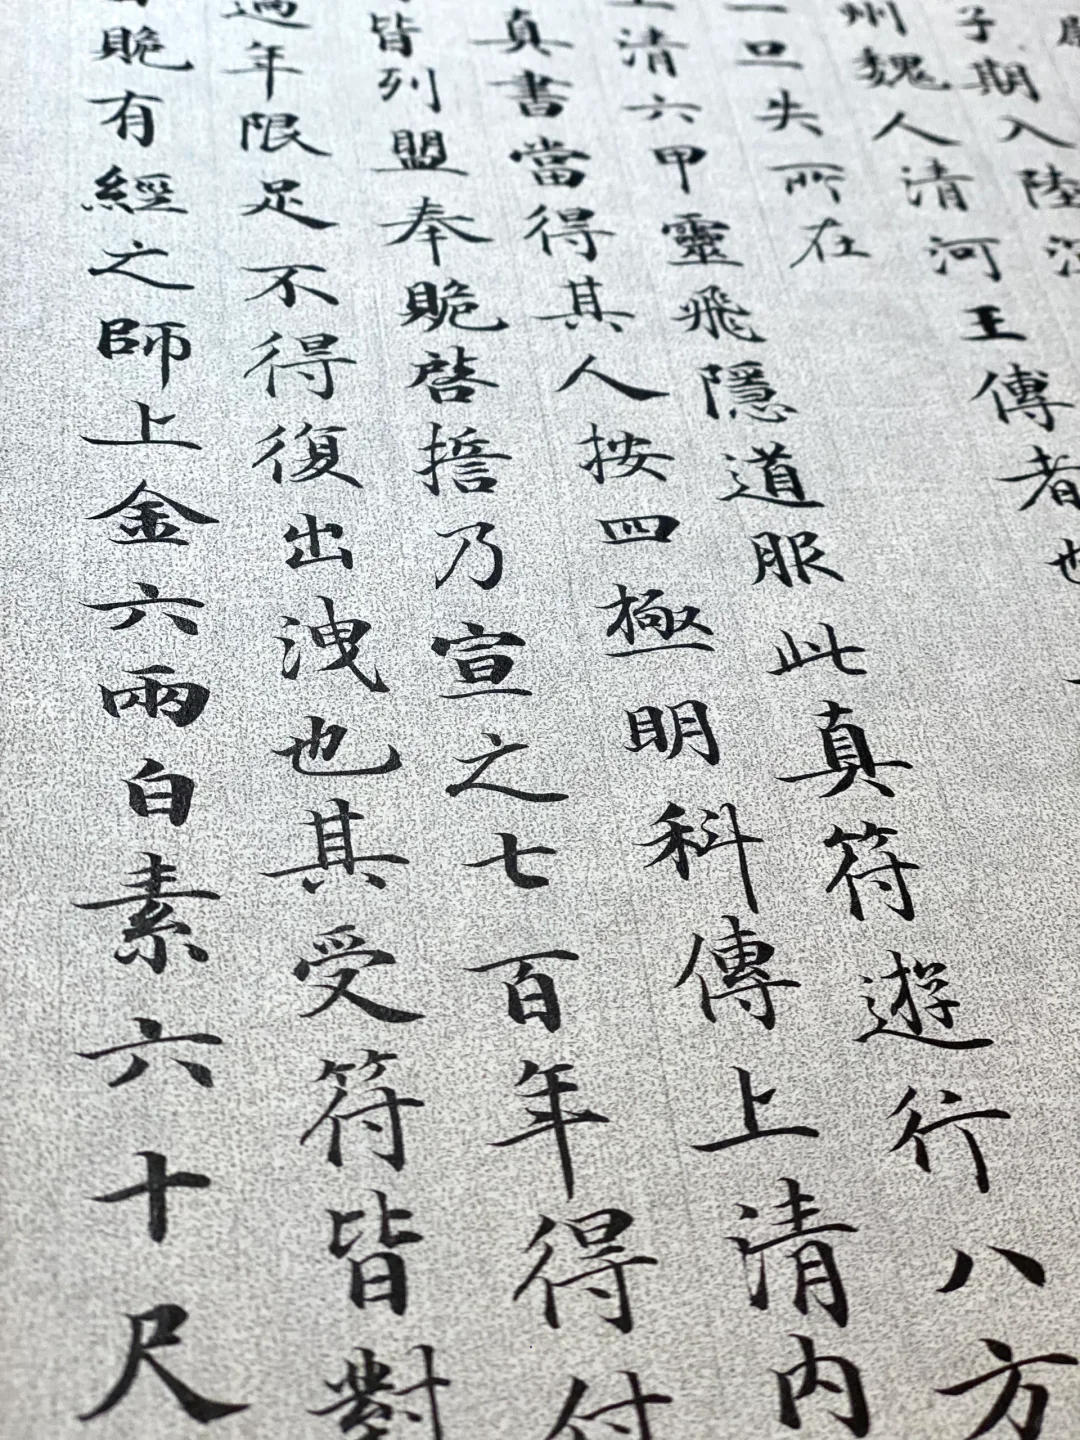 子期入陸
州魏人清河王傅者也
一旦失所在
上清六甲靈飛隱道服此真符遊行八方
真書當得其人按四極明科傳上清内
皆列盟奉䞈啓擔乃宣之七百年得付
過年限足不得復出洩也其受符皆對
䞈有經之師上金六兩白素六十尺